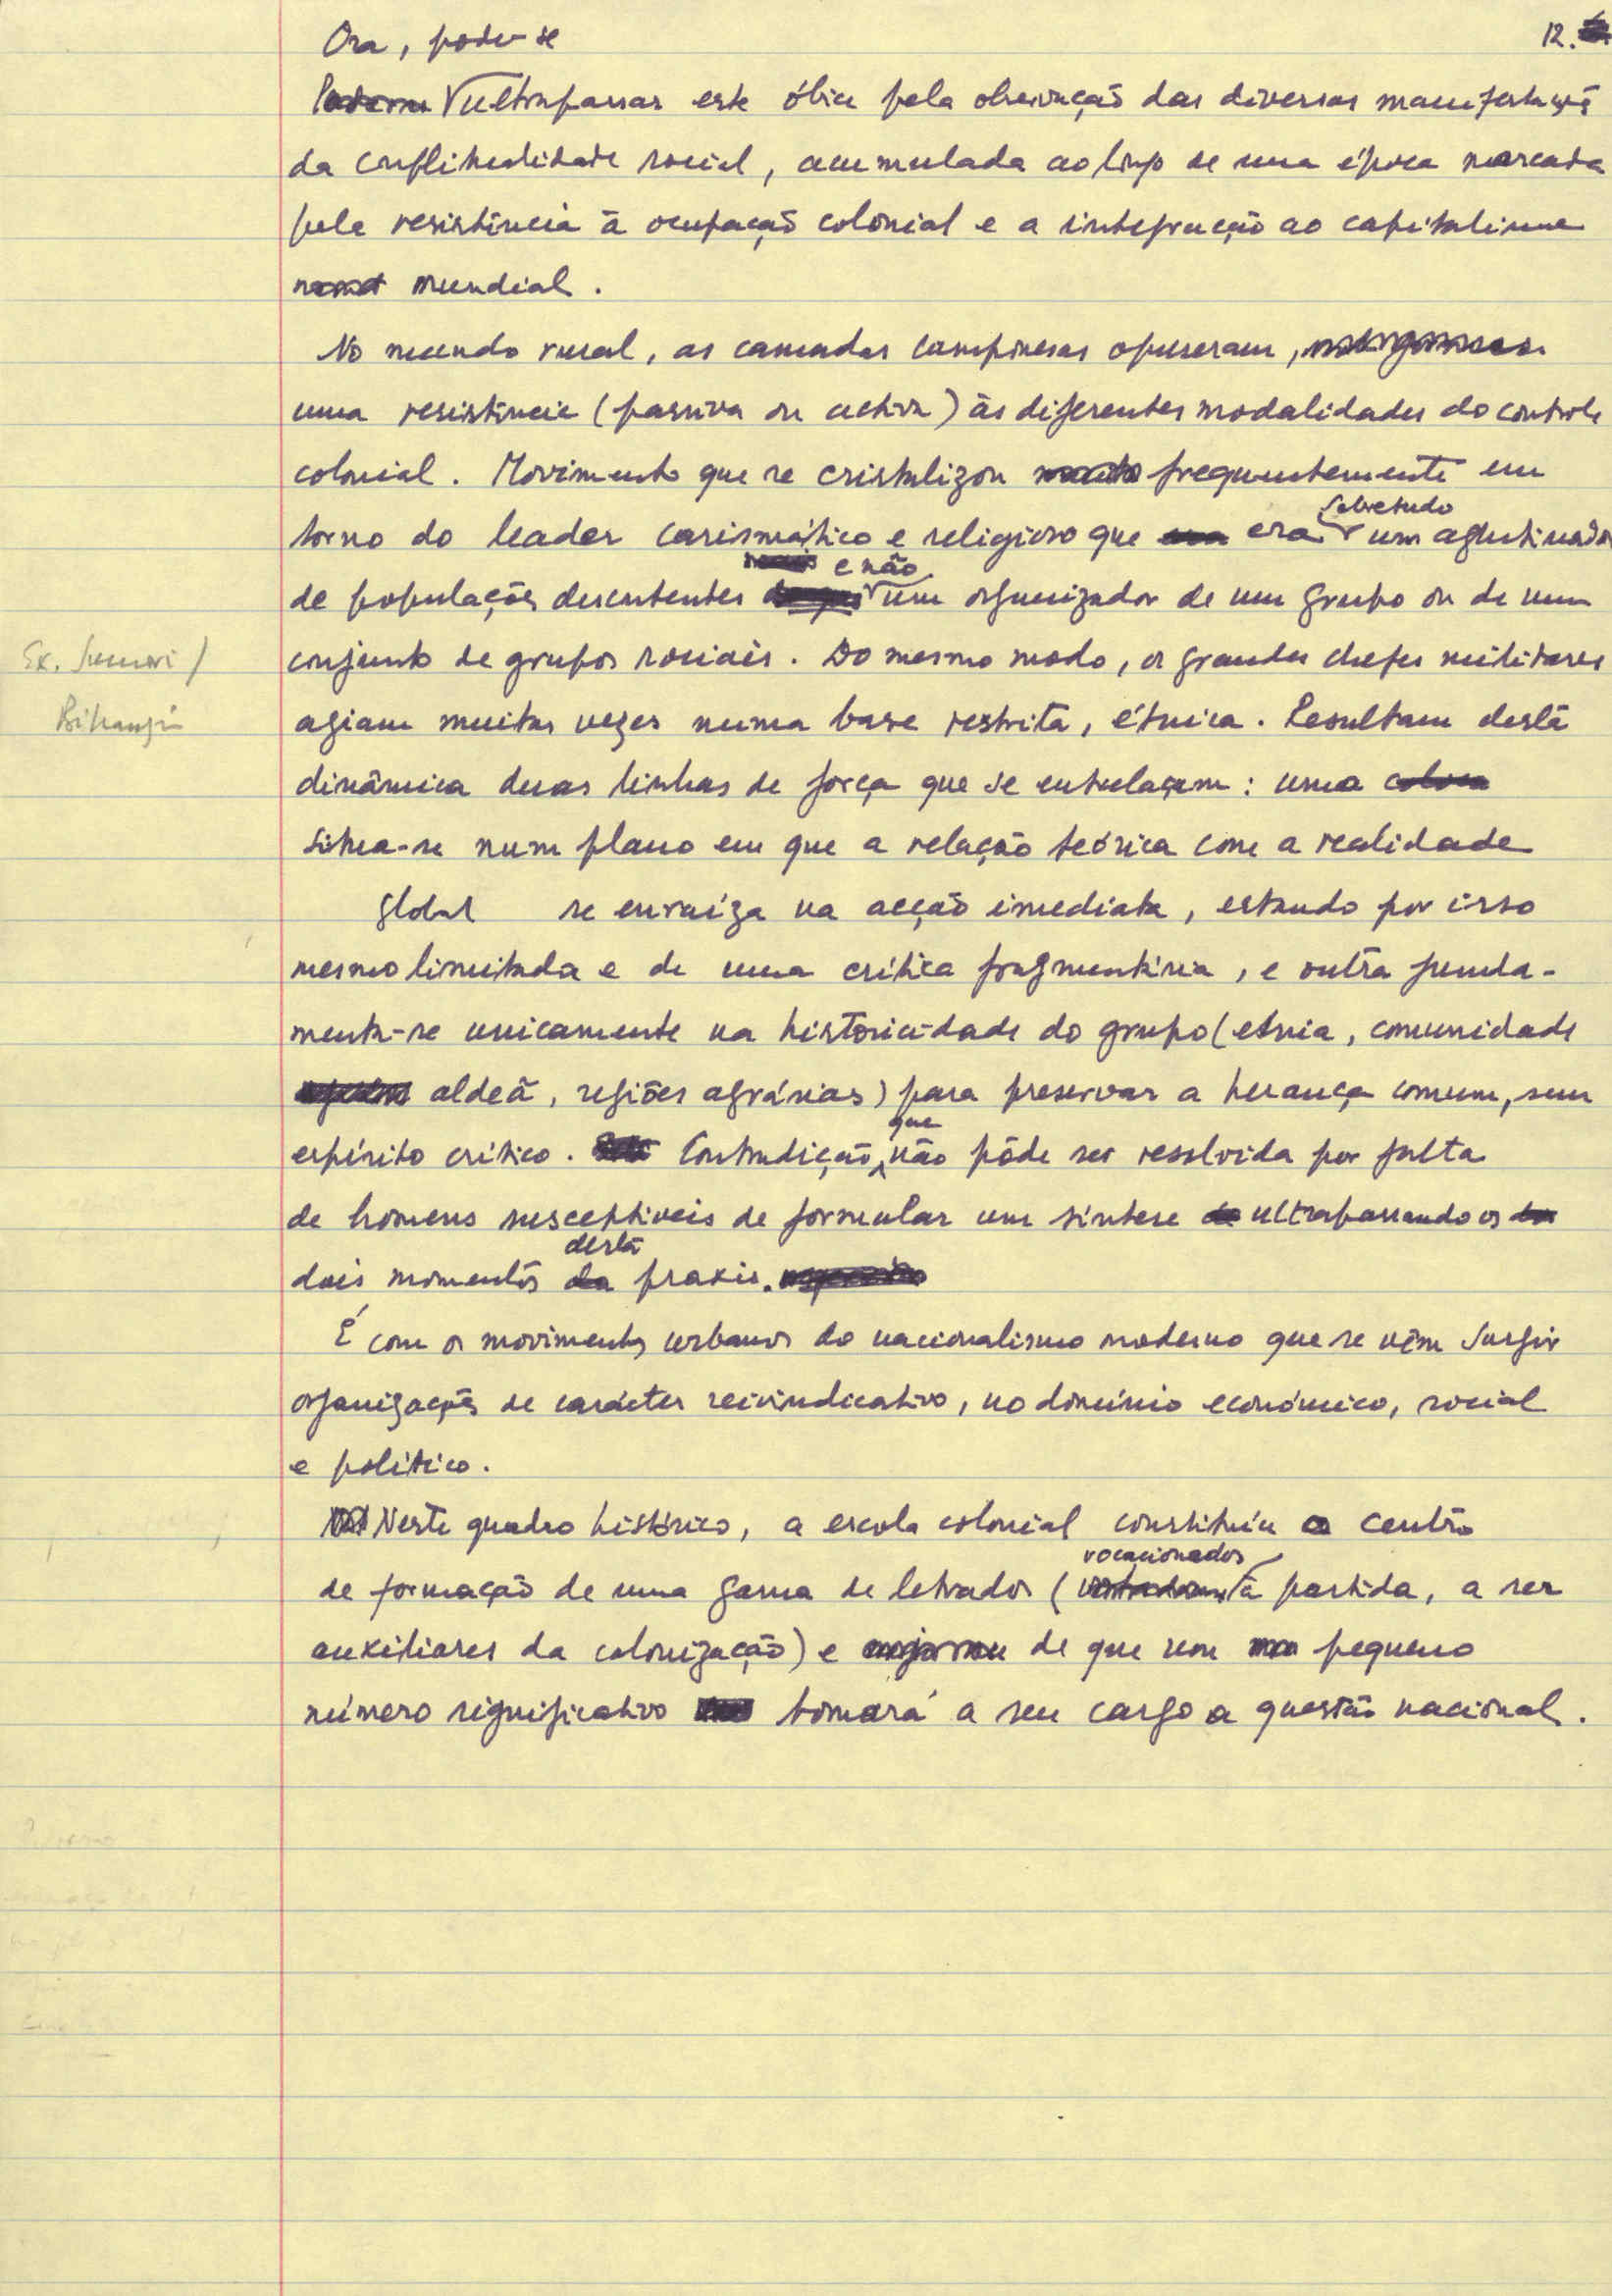 Ora, pode-se
12.
ultrapassar este óbice pela observação das diversas manifestações
da conflitualidade social, acumulada ao longo de uma época marcada
pela resistência à ocupação colonial e a integração ao capitalismo
mundial.
No mundo rural, as camadas camponesas opuseram,
uma resistência (passiva ou activa) às diferentes modalidades do controle
colonial. Movimento que se cristalizou frequentemente em
sobretudo
torno do leader carismático e religioso que era um aglutinador
e não
de populações descontentes um organizador de um grupo ou de um
Ex.
conjunto de grupos sociais. Do mesmo modo, os grandes chefes militares
agiam muitas vezes numa base restrita, étnica. Resultam desta
dinâmica duas linhas de força que se entrelaçam: uma
situa-se num plano em que a relação teórica com a realidade
global se enraíza na acção imediata, estando por isso
mesmo limitada e de uma crítica fragmentária, e outra funda-
menta-se unicamente na historicidade do grupo (etnia, comunidade
aldeã, regiões agrárias) para preservar a herança comum, sem
que
espírito crítico. Contradição não pôde ser resolvida por falta
de homens susceptíveis de formular um síntese ultrapassando os
desta
dois momentos da praxis.
É com os movimentos urbanos do nacionalismo moderno que se vêm surgir
organizações de carácter reivindicativo, no domínio económico, social
e político.
Neste quadro histórico, a escola colonial constituiu o centro
vocacionados
de formação de uma gama de letrados (à partida, a ser
auxiliares da colonização) e de que um pequeno
número significativo tomará a seu cargo a questão nacional.